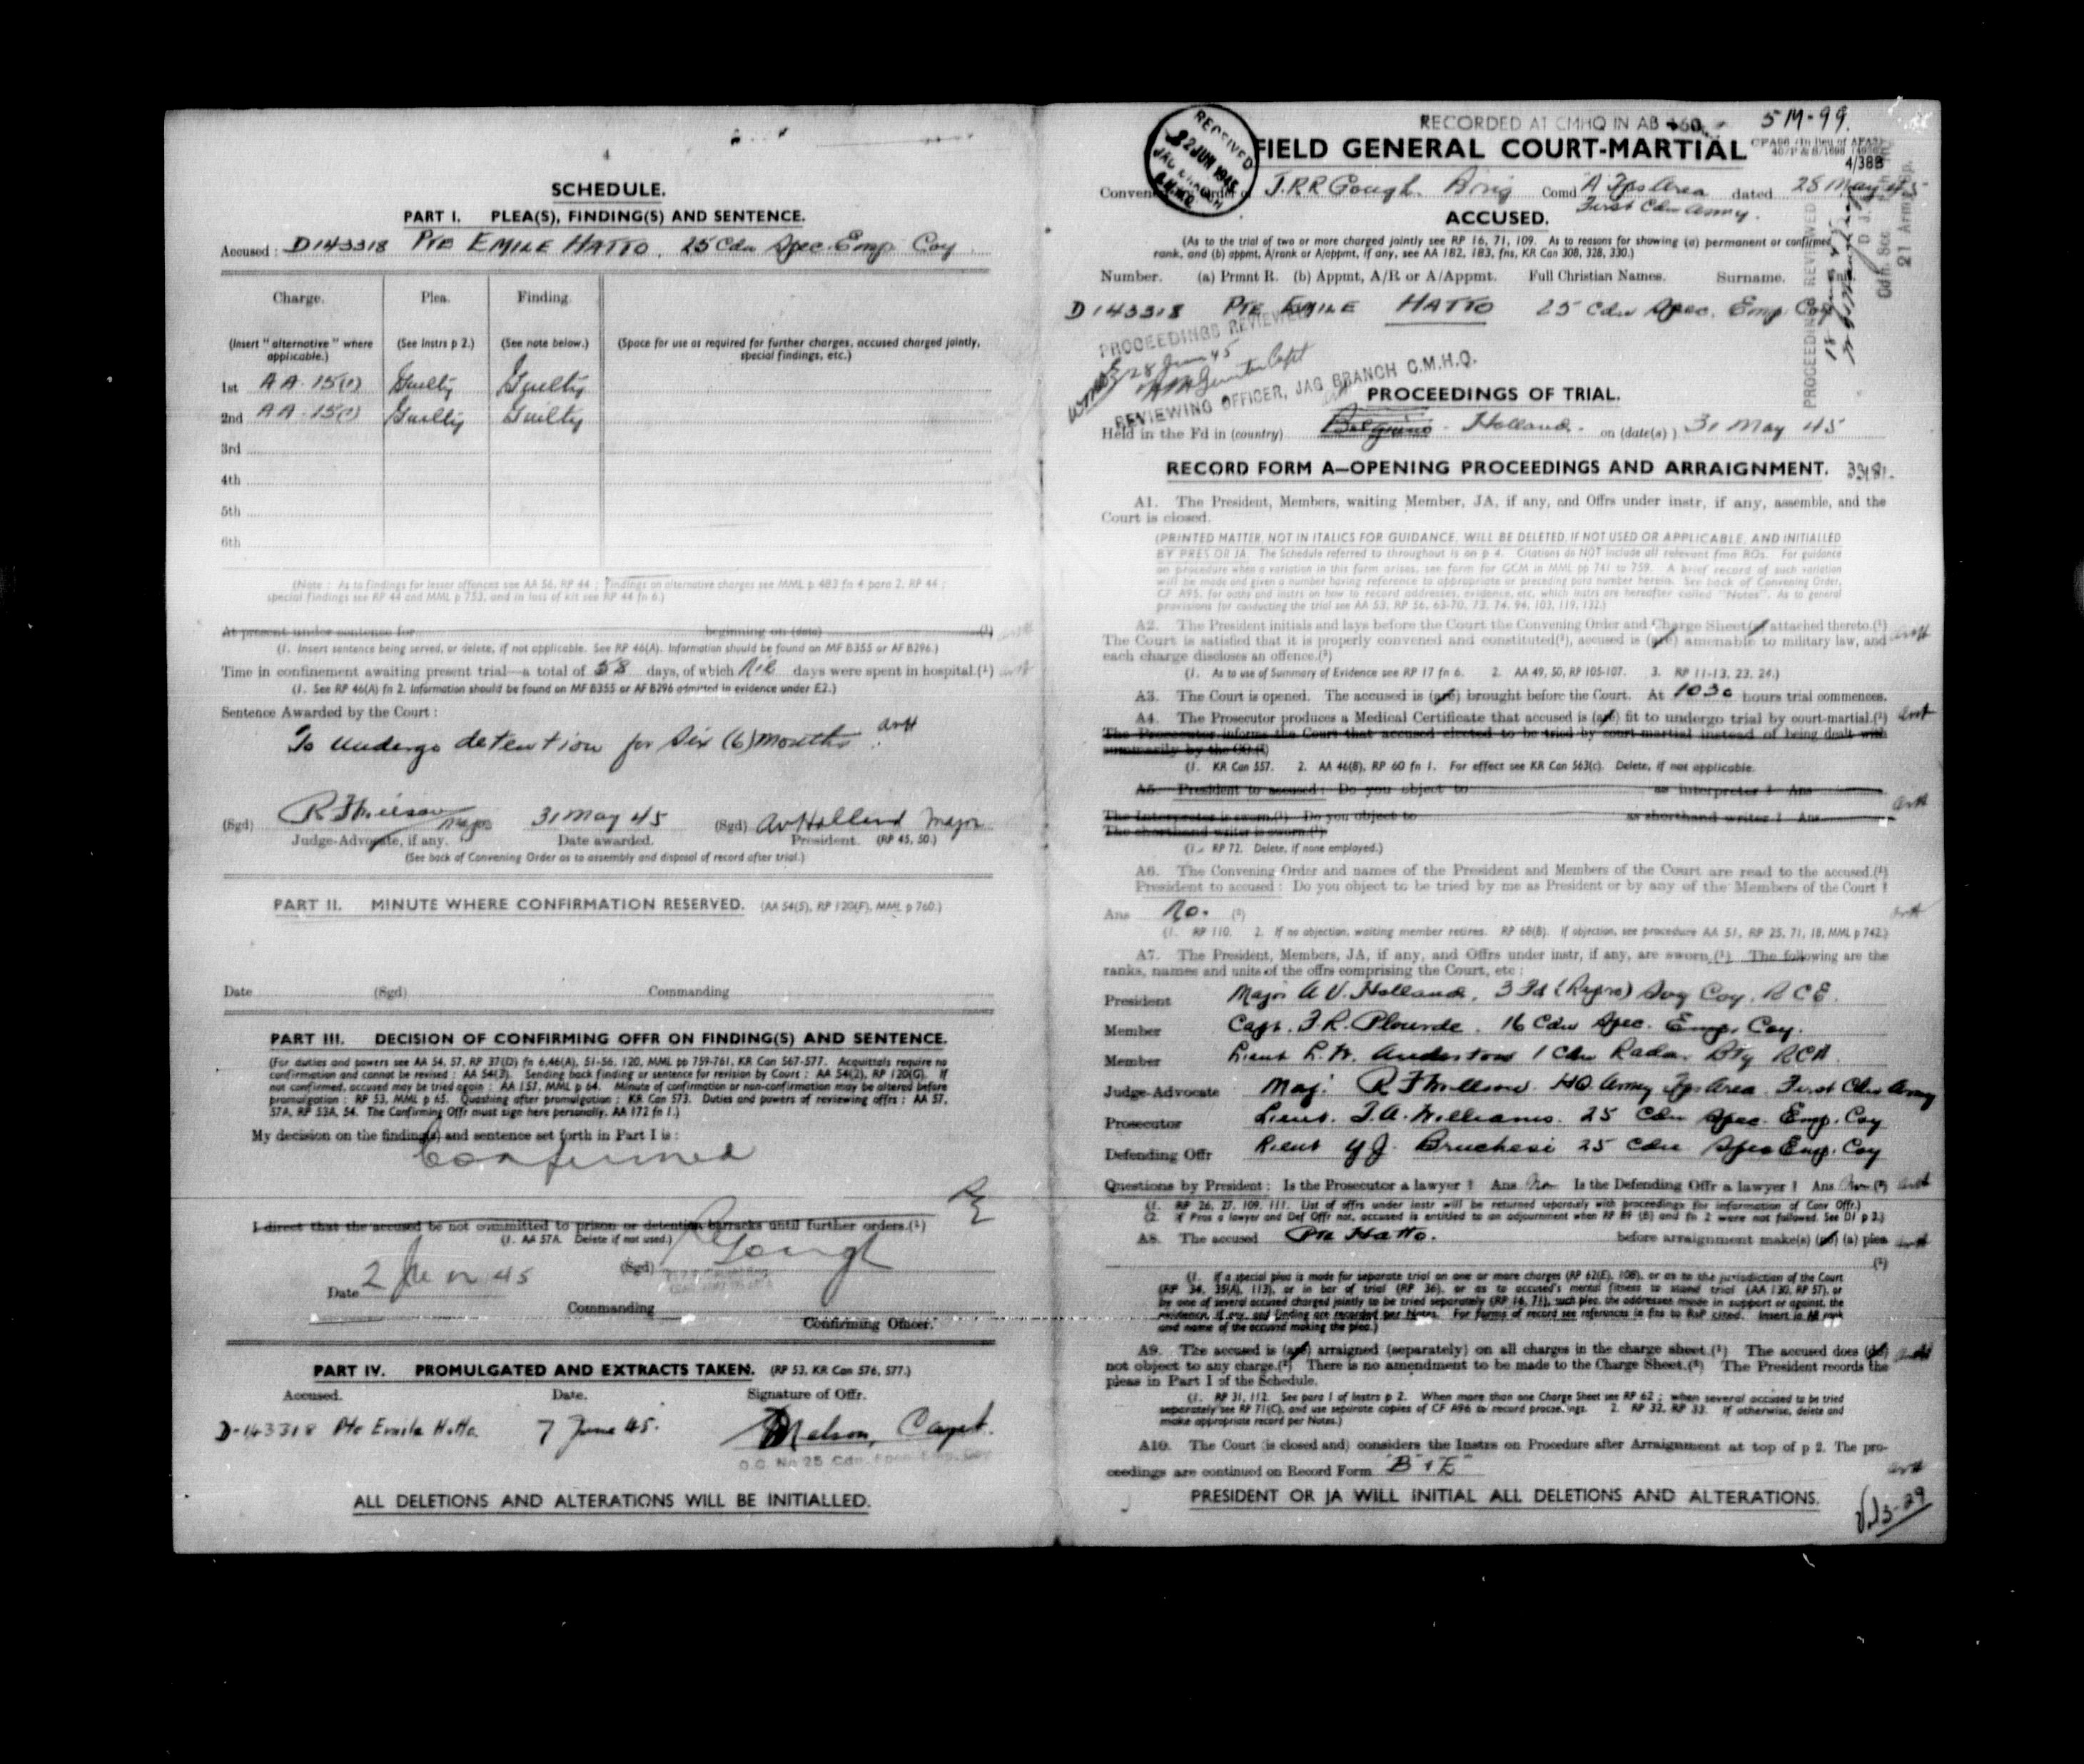 SCHEDULE.
PART I. PLEA(S), FINDING(S) AND SENTENCE.
Accused : D143318 Pte EMILE HATTO, 25 Cdn Spec. Emp. Coy
Charge. Plea. Finding.
(Insert "alternative" where applicable.) (See Instrs p 2.) (See note below.) (Space for use as required for further charges, accused charged jointly, special findings, etc.)
1st AA 15(1) Guilty Guilty
2nd AA 15(1) Guilty Guilty
3rd
4th
5th
6th
(Note : As to findings for lesser offences see AA 56, RP 44 ; Findings on alternative charges see MML p 483 fn 4 para 2, RP 44 ;
special findings see RP 44 and MML p 753, and in loss of kit see RP 44 fn 6.)
At present under sentence for beginning on (date) (1)
(1. Insert sentence being served, or delete, if not applicable. See RP 46(A). Information should be found on MF B355 or AF B296.)
Time in confinement awaiting present trial—a total of 58 days, of which Nil days were spent in hospital.(1)
(1. See RP 46(A) fn 2. Information should be found on MF B355 or AF B296 admitted in evidence under E2.)
Sentence Awarded by the Court :
To undergo detention for six (6) months. avH
(Sgd) Major 31 May 45 (Sgd) AvHolland Major
Judge-Advocate, if any. Date awarded. President. (RP 45, 50.)
(See back of Convening Order as to assembly and disposal of record after trial.)
PART II. MINUTE WHERE CONFIRMATION RESERVED. (AA 54(5), RP 120(F), MML p 760.)
Date (Sgd) Commanding
PART III. DECISION OF CONFIRMING OFFR ON FINDING(S) AND SENTENCE.
(For duties and powers see AA 54, 57, RP 37(D) fn 6,46(A), 51-56, 120, MML pp 759-761, KR Can 567-577. Acquittals require no
confirmation and cannot be revised : AA 54(3). Sending back finding or sentence for revision by Court : AA 54(2), RP 120(G). If
not confirmed, accused may be tried again : AA 157, MML p 64. Minute of confirmation or non-confirmation may be altered before
promulgation : RP 53, MML p 65. Quashing after promulgation : KR Can 573. Duties and powers of reviewing offrs : AA 57,
57A, RP 53A, 54. The Confirming Offr must sign here personally, AA 172 fn 1.)
My decision on the finding(s) and sentence set forth in Part I is :
Confirmed
I direct that the accused be not committed to prison or detention barracks until further orders.(1)
(1. AA 57A. Delete if not used.)
Date 2 June 45 (Sgd) Gough
Commanding
Confirming Officer.
PART IV. PROMULGATED AND EXTRACTS TAKEN. (RP 53, KR Can 576, 577.)
Accused. Date. Signature of Offr.
D-143318 Pte Emile Hatto. 7 June 45. Capt.
O.C. No 25 Cdn. Spec. Emp. Coy
ALL DELETIONS AND ALTERATIONS WILL BE INITIALLED.
RECORDED AT CMHQ IN AB 160 5 M-99.
RECEIVED 22 JUN 1945 JAG BRANCH C.M.H.Q.
FIELD GENERAL COURT-MARTIAL
4/388
Convened by order of J.R.R Gough. Brig Comd 'A' Tps Area dated 25 May 45
First Cdn Army.
ACCUSED.
(As to the trial of two or more charged jointly see RP 16, 71, 109. As to reasons for showing (a) permanent or confirmed
rank, and (b) appmt, A/rank or A/appmt, if any, see AA 182, 183, fns, KR Can 308, 328, 330.)
Number. (a) Prmnt R. (b) Appmt, A/R or A/Appmt. Full Christian Names. Surname. Unit.
D 143318 Pte EMILE HATTO 25 Cdn Spec. Emp. Coy
PROCEEDINGS REVIEWED
28 Jun 45
Capt
REVIEWING OFFICER, JAG BRANCH C.M.H.Q.
PROCEEDINGS REVIEWED
PROCEEDINGS OF TRIAL.
Held in the Fd in (country) Belgium - Holland. on (date(s)) 31 May 45
RECORD FORM A—OPENING PROCEEDINGS AND ARRAIGNMENT.
A1. The President, Members, waiting Member, JA, if any, and Offrs under instr, if any, assemble, and the
Court is closed.
(PRINTED MATTER, NOT IN ITALICS FOR GUIDANCE, WILL BE DELETED, IF NOT USED OR APPLICABLE, AND INITIALLED
BY PRES OR JA. The Schedule referred to throughout is on p 4. Citations do NOT include all relevant fmn ROs. For guidance
on procedure when a variation in this form arises, see form for GCM in MML pp 741 to 759. A brief record of such variation
will be made and given a number having reference to appropriate or preceding para number herein. See back of Convening Order,
CF A95, for oaths and instrs on how to record addresses, evidence, etc, which instrs are hereafter called "Notes". As to general
provisions for conducting the trial see AA 53, RP 56, 63-70, 73, 74, 94, 103, 119, 132.)
A2. The President initials and lays before the Court the Convening Order and Charge Sheet(s) attached thereto.(1)
The Court is satisfied that it is properly convened and constituted(2), accused is (are) amenable to military law, and
each charge discloses an offence.(3)
(1. As to use of Summary of Evidence see RP 17 fn 6. 2. AA 49, 50, RP 105-107. 3. RP 11-13, 23, 24.)
A3. The Court is opened. The accused is (are) brought before the Court. At 1030 hours trial commences.
A4. The Prosecutor produces a Medical Certificate that accused is (are) fit to undergo trial by court-martial.(1)
The Prosecutor informs the Court that accused elected to be tried by court-martial instead of being dealt with
summarily by the CO.(2)
(1. KR Can 557. 2. AA 46(8), RP 60 fn 1. For effect see KR Can 563(c). Delete, if not applicable.
A5. President to accused : Do you object to as interpreter ? Ans
The Interpreter is sworn.(1) Do you object to as shorthand writer ? Ans
The shorthand writer is sworn.(1)
(1. RP 72. Delete, if none employed.)
A6. The Convening Order and names of the President and Members of the Court are read to the accused.(1)
President to accused : Do you object to be tried by me as President or by any of the Members of the Court ?
Ans No. (2)
(1. RP 110. 2. If no objection, waiting member retires. RP 68(B). If objection, see procedure AA 51, RP 25, 71, 18, MML p 742.)
A7. The President, Members, JA, if any, and Offrs under instr, if any, are sworn.(1) The following are the
ranks, names and units of the offrs comprising the Court, etc :
President Major A V. Holland, 3 Fd (Repro) Svy Coy. RCE.
Member Capt. F.R. Plourde. 16 Cdn Spec. Emp. Coy.
Member Lieut L.W. Anderson 1 Cdn Radar Bty RCA
Judge-Advocate Maj. HQ Army Tps Area First Cdn Army
Prosecutor Lieut. T.A. Williams. 25 Cdn Spec. Emp. Coy
Defending Offr Lieut Y J. Bruchesi 25 Cdn Spec Emp. Coy
Questions by President : Is the Prosecutor a lawyer ? Ans No Is the Defending Offr a lawyer ? Ans No (2)
(1. RP 26, 27, 109, 111. List of offrs under instr will be returned separately with proceedings for information of Conv Offr.)
(2. If Pros a lawyer and Def Offr not, accused is entitled to an adjournment when RP 89 (B) and fn 2 were not followed. See D1 p 3.)
A8. The accused Pte Hatto. before arraignment make(s) (no) (a) plea
(1)
(1. If a special plea is made for separate trial on one or more charges (RP 62(E), 108), or as to the jurisdiction of the Court
(RP 34, 35(A), 113), or in bar of trial (RP 36), or as to accused's mental fitness to stand trial (AA 130, RP 57), or
by one of several accused charged jointly to be tried separately (RP 16, 71), such plea, the addresses made in support or against, the
evidence, if any, and finding are recorded per Notes. For forms of record see references in fns to RsP cited. Insert in A8 rank
and name of the accused making the plea.)
A9. The accused is (are) arraigned (separately) on all charges in the charge sheet.(1) The accused does (do)
not object to any charge.(2) There is no amendment to be made to the Charge Sheet.(2) The President records the
pleas in Part I of the Schedule.
(1. RP 31, 112. See para 1 of Instrs p 2. When more than one Charge Sheet see RP 62 ; when several accused to be tried
separately see RP 71(C), and use separate copies of CF A96 to record proceedings. 2. RP 32, RP 33. If otherwise, delete and
make appropriate record per Notes.)
A10. The Court (is closed and) considers the Instrs on Procedure after Arraignment at top of p 2. The pro-
ceedings are continued on Record Form "B" & "E"
PRESIDENT OR JA WILL INITIAL ALL DELETIONS AND ALTERATIONS.